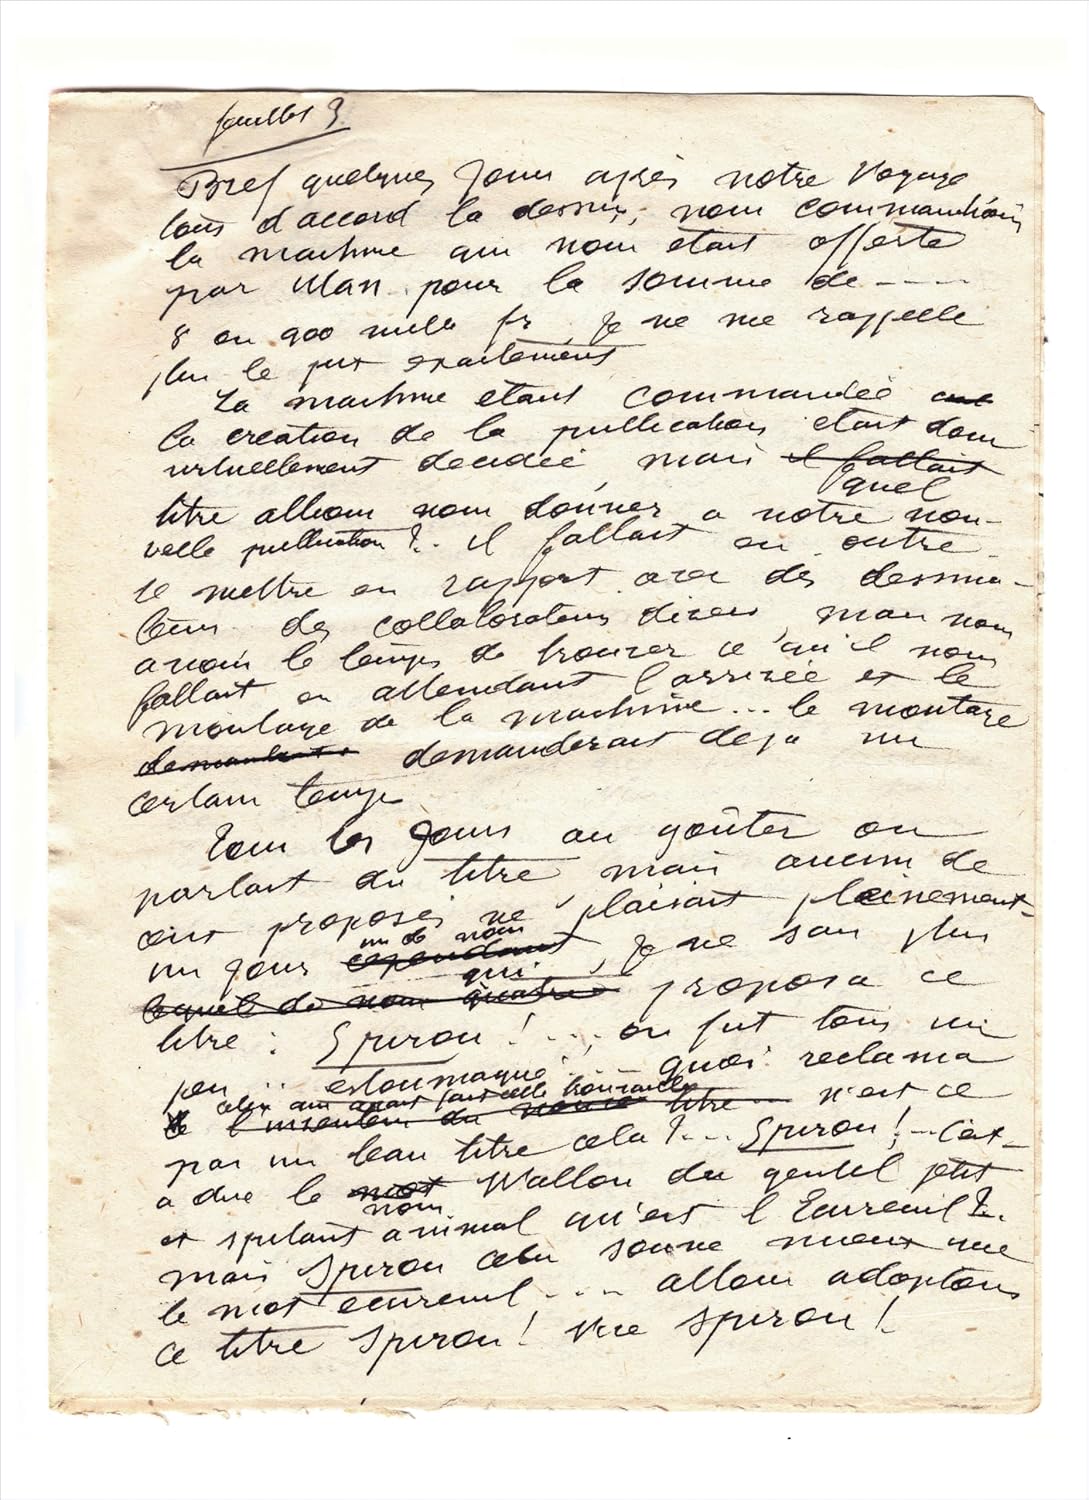 feuillet 3
Bref quelques jours après notre voyage
tous d'accord la dessus, nous commandions
la machine qui nous etait offerte
par Man pour la somme de ----
8 ou 900 mille fr, je ne me rappelle
plus le prix exactement
La machine etant commandée
la creation de la publication etait donc
virtuellement decidée mais il fallait
quel
titre allions nous donner a notre nou-
velle publication?.. il fallait en outre
se mettre en rapport avec des dessina-
teurs des collaborateurs divers, mais nous
avions le temps de trouver ce qu'il nous
fallait en attendant l'arrivée et le
montage de la machine... le montage
demandait demanderait deja un
certain temps
Tous les jours au goûter on
parlait du titre mais aucun de
ceux proposés ne plaisait pleinement-
un de nous
un jour cependant, je ne sais plus
qui
lequel de nous quatre proposa ce
titre: Spirou! ..., on fut tous un
peu .. estoumaqué ... quoi reclama
celui qui avait fait cette trouvaille
l'inventeur du titre n'est ce
pas un beau titre cela?... Spirou! --- C'est-
a dire le mot Wallon du gentil petit
nom
et spitant animal qu'est l'Ecureuil?..
mais Spirou cela sonne mieux que
le mot ecureuil, --- allons adoptons
ce titre Spirou! Vive Spirou!